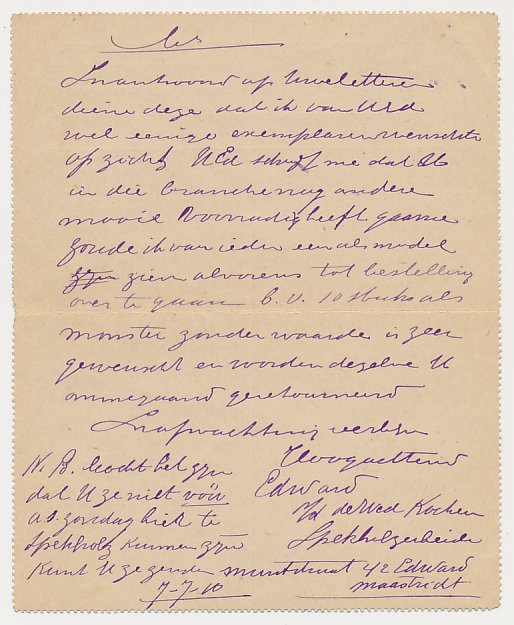 In antwoord op Uwe letteren
diene deze dat ik van UEd
wel eenige exemplaren wenschte
op zicht UEd schrijf me dat U
in die branche nog andere
mooie voorradig heeft gaarne
zoude ik van ieder een als model
zien alvorens tot bestelling
over te gaan b.v. 10 stuks als
monster zonder waarde is zeer
gewenscht en worden dezelve U
ommegaand geretourneerd
In afwachting verblijv
Hoogachtend
Edward
p/a de Wed Kochen
Spekholzerheide
N.B. Mocht het zijn
dat U ze niet vóór
a.s. zondag hier te
Spekholz kunnen zijn
Kunt U ze zenden muntstraat 42 Edward
Maastricht
7-7-10